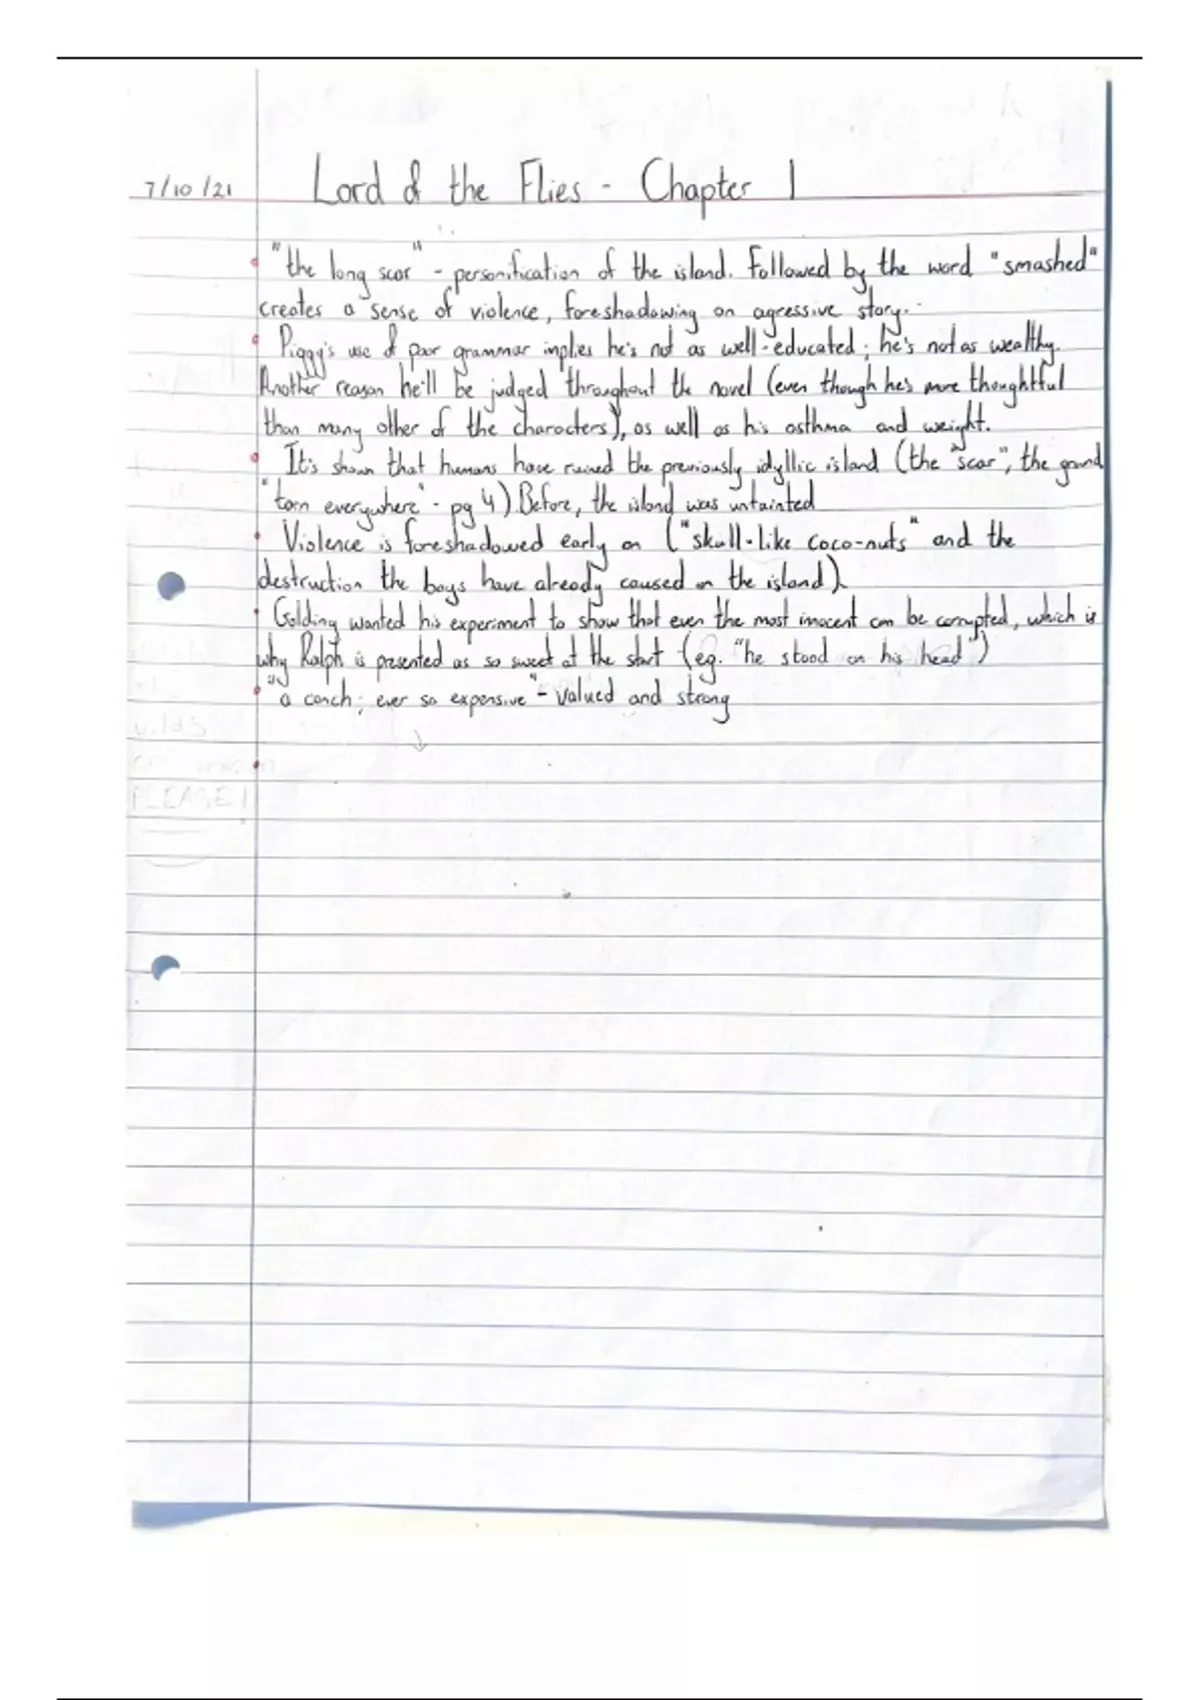 7/10/21 Lord of the Flies - Chapter 1
"the long scar" - personification of the island. Followed by the word "smashed"
creates a sense of violence, foreshadowing an agressive story.
Piggy's use of poor grammar implies he's not as well-educated; he's not as wealthy.
Another reason he'll be judged throughout the novel (even though he's more thoughtful
than many other of the characters), as well as his asthma and weight.
It's shown that humans have ruined the previously idyllic island (the "scar", the ground
"torn everywhere" - pg 4). Before, the island was untainted
Violence is foreshadowed early on ("skull-like coco-nuts" and the
destruction the boys have already caused on the island).
Golding wanted his experiment to show that even the most innocent can be corrupted, which is
why Ralph is presented as so sweet at the start (eg. "he stood on his head")
"a conch; ever so expensive" - valued and strong
PLEASE!